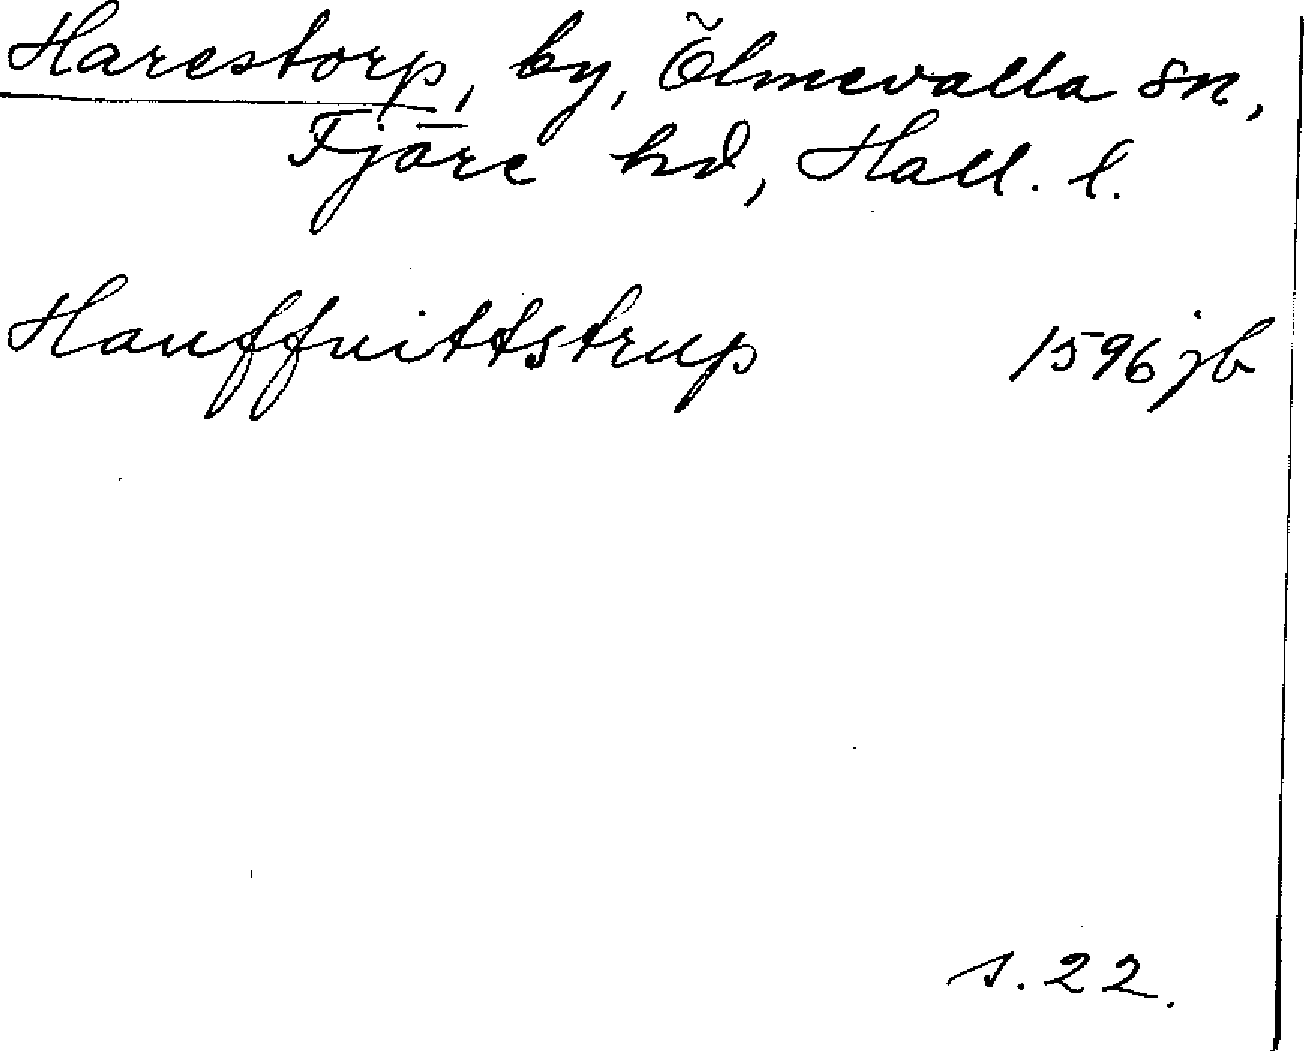 Harestorp, by, Ölmevalla sn,
Fjäre hd, Hall. l.
Hauffuittstrup 1596 jb
s. 22.